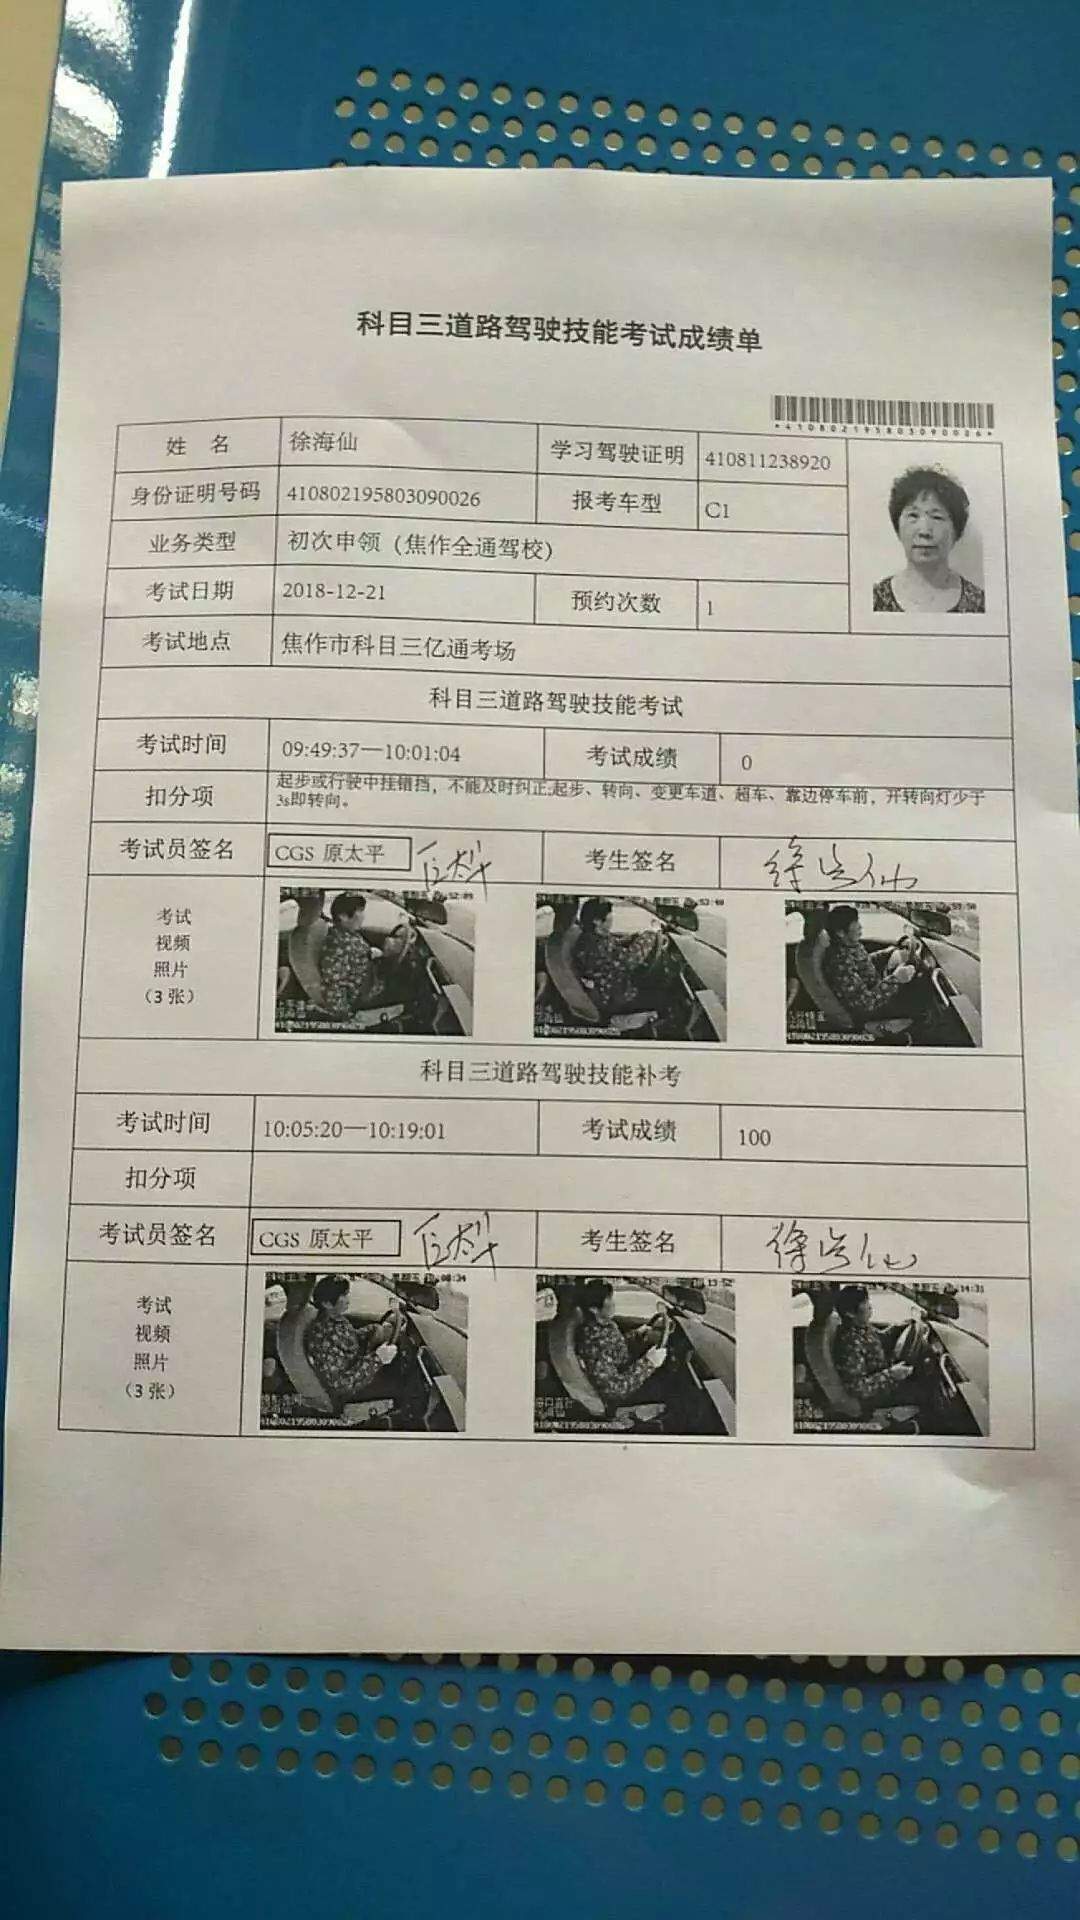 科目三道路驾驶技能考试成绩单
*410802195803090026*
姓 名 徐海仙 学习驾驶证明 410811238920
身份证明号码 410802195803090026 报考车型 C1
业务类型 初次申领（焦作全通驾校）
考试日期 2018-12-21 预约次数 1
考试地点 焦作市科目三亿通考场
科目三道路驾驶技能考试
考试时间 09:49:37—10:01:04 考试成绩 0
扣分项 起步或行驶中挂错挡，不能及时纠正;起步、转向、变更车道、超车、靠边停车前，开转向灯少于
3s即转向。
考试员签名 CGS 原太平 考生签名 徐海仙
考试
视频
照片
（3 张）
科目三道路驾驶技能补考
考试时间 10:05:20—10:19:01 考试成绩 100
扣分项
考试员签名 CGS 原太平 考生签名 徐海仙
考试
视频
照片
（3 张）